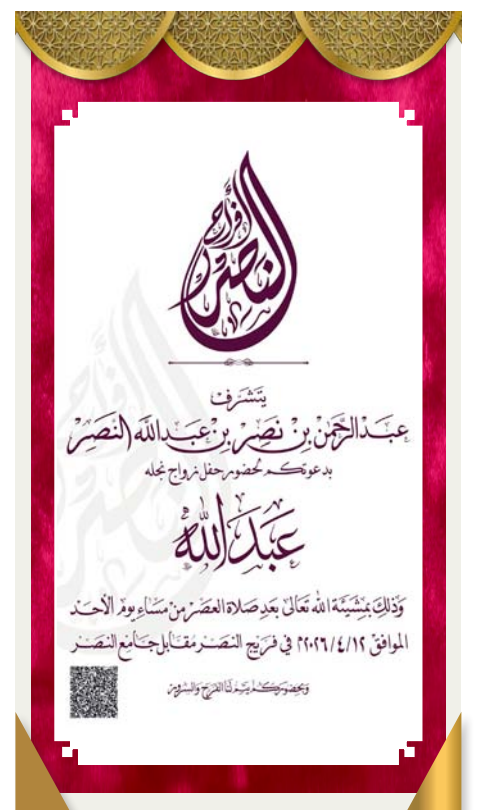 أفراح
النصر
يتشرف
عَبدالرَّحمن بِن نَصِر بِن عَبدالله النصر
بدعوتكم لحضور حفل زواج نجله
عَبدَالله
وَذلِكَ بمَشيئة الله تعَالى بَعد صَلاة العصَر من مسَاءِ يوم الأحَد
الموافق ٢٠٢٦/٤/١٢م في فريج النصر مقَابل جَامِع النصر
وبحضوركم يتم لنا الفرح والسرور